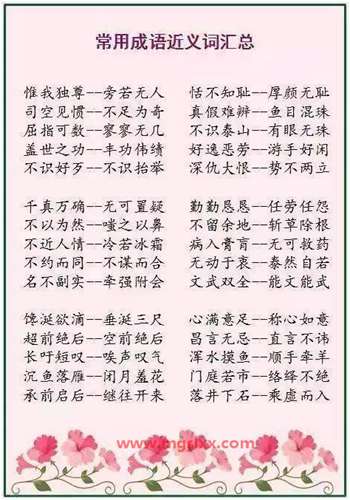 常用成语近义词汇总
惟我独尊--旁若无人 恬不知耻--厚颜无耻
司空见惯--不足为奇 真假难辨--鱼目混珠
屈指可数--寥寥无几 不识泰山--有眼无珠
盖世之功--丰功伟绩 好逸恶劳--游手好闲
不识好歹--不识抬举 深仇大恨--势不两立
千真万确--无可置疑 勤勤恳恳--任劳任怨
不以为然--嗤之以鼻 不留余地--斩草除根
不近人情--冷若冰霜 病入膏肓--无可救药
不约而同--不谋而合 无动于衷--泰然自若
名不副实--牵强附会 文武双全--能文能武
馋涎欲滴--垂涎三尺 心满意足--称心如意
超前绝后--空前绝后 昌言无忌--直言不讳
长吁短叹--唉声叹气 浑水摸鱼--顺手牵羊
沉鱼落雁--闭月羞花 门庭若市--络绎不绝
承前启后--继往开来 落井下石--乘虚而入
www.mgrlxx.com